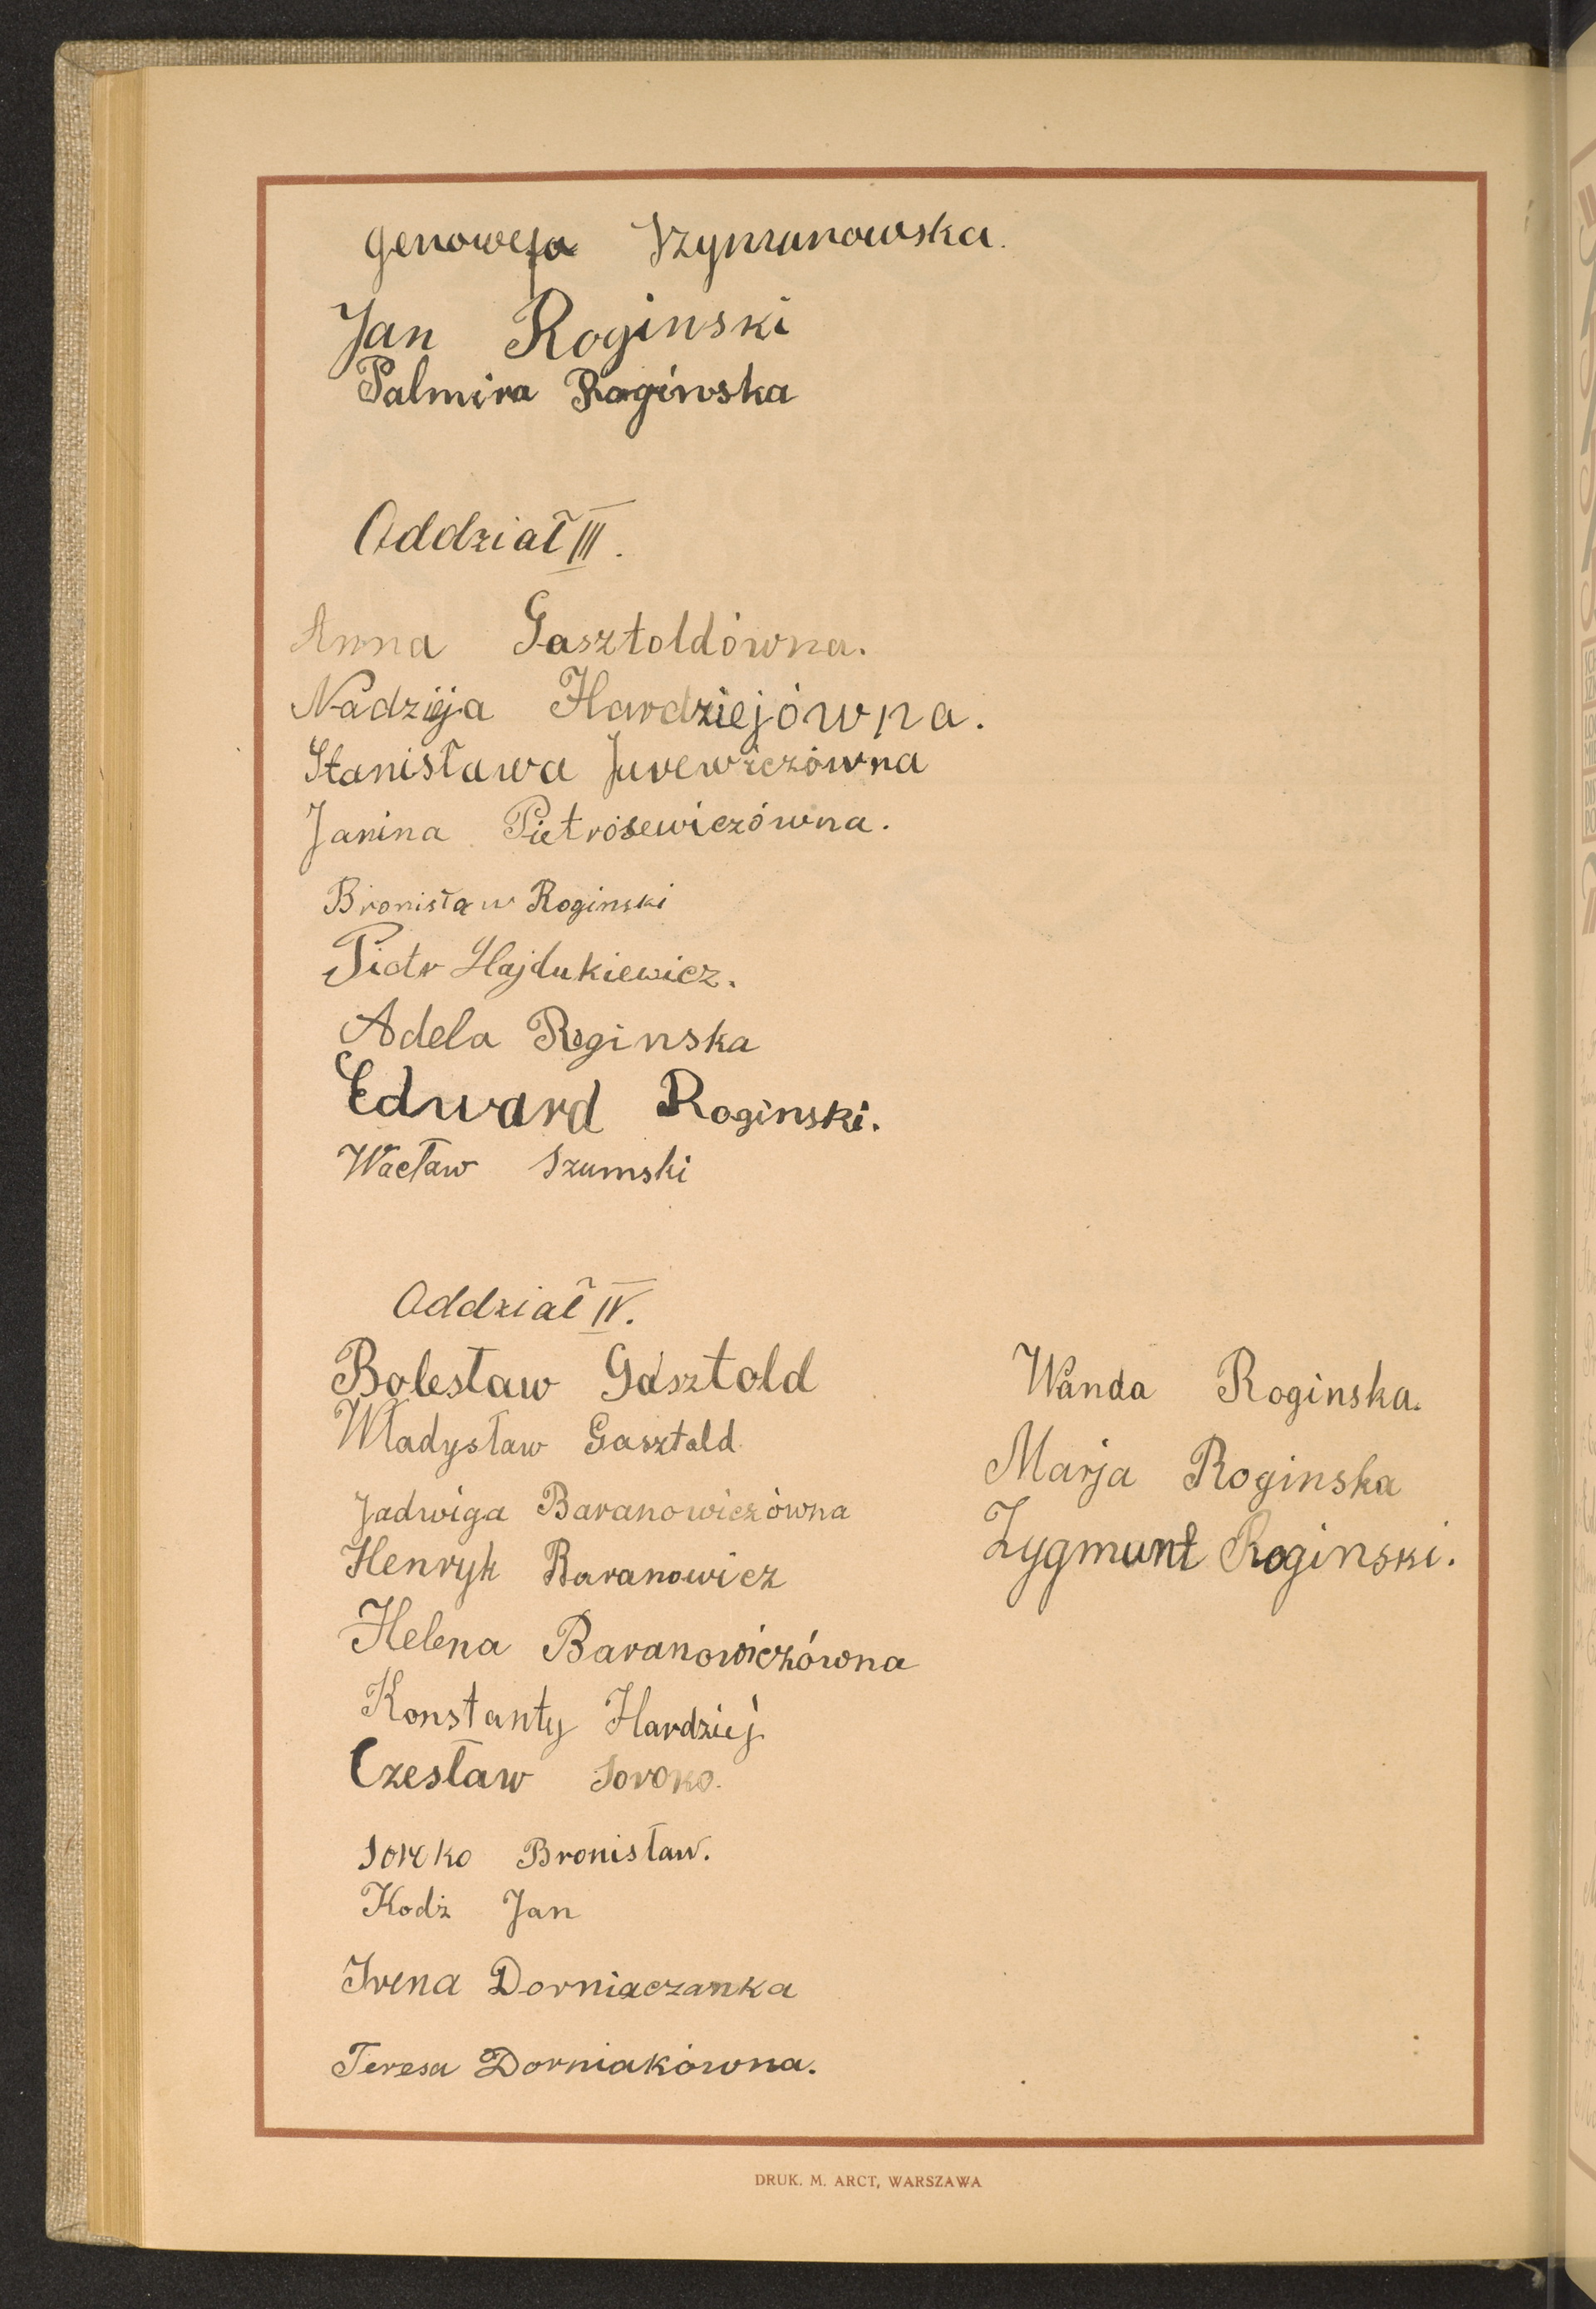 Genowefa Szymunowska.
Jan Roginski
Palmira Roginska
Oddział III.
Anna Gasztoldówna.
Nadzieja Hardziejówna.
Stanisława Jurewiczówna
Janina Pietrósewiczówna.
Bronisław Roginski
Piotr Hajdukiewicz.
Adela Roginska
Edward Roginski.
Wacław Szumski
Oddział IV.
Bolesław Gasztold
Władysław Gasztold
Jadwiga Baranowiczówna
Henryk Baranowicz
Helena Baranowiczówna
Konstanty Hardziej
Czesław Soroko.
Soroko Bronisław.
Kodź Jan
Irena Dorniaczanka
Teresa Dorniakówna.
Wanda Roginska.
Marja Roginska
Zygmunt Roginski.
DRUK. M. ARCT, WARSZAWA